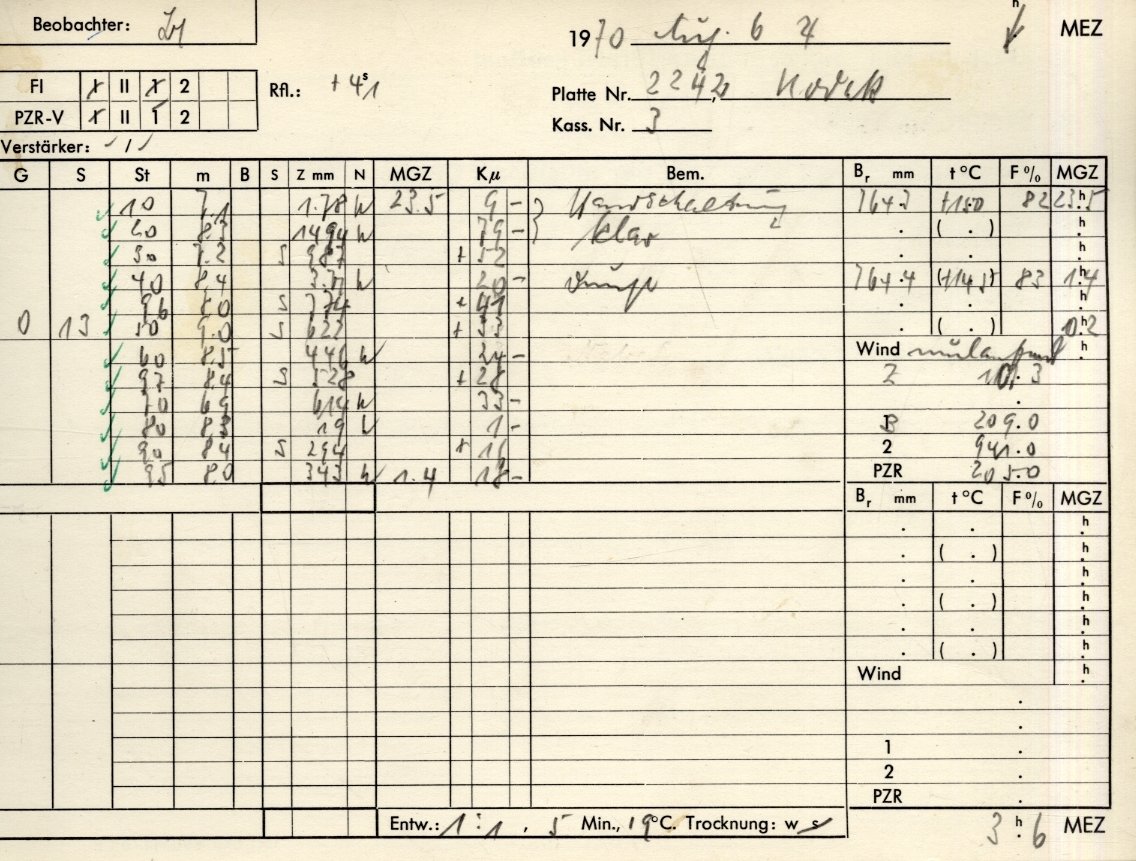 Beobachter:
1970 Aug. 6 h MEZ
FI X II X 2
Rfl.: + 4 s 1
Platte Nr. 2242, Kodak
PZR-V X II 1 2
Kass. Nr. 3
Verstärker: / 1 /
G S St m B S Z mm N MGZ Kμ Bem. Br mm t °C F % MGZ
10 7.1 1.78 N 23.5 9 - Handschaltung 764.3 +15.0 82 23.5 h
20 8.3 1494 N 79 - klar . ( . ) h
30 7.2 S 987 + 52 . . h
40 8,4 3.71 N 20 - 764.4 (+14.5) 83 1.4 h
96 8.0 S 774 + 41 . .
0 13 50 9.0 S 622 + 33 . ( . ) 0.2 h
60 8.5 446 N 24 - Wind umlaufend h
97 8.4 S 528 + 28 Z 101.3
70 6.9 614 N 33 - .
80 8.3 19 N 1 - 1 209.0
90 8.4 S 294 + 16 2 941.0
95 8.0 343 N 1.4 18 - PZR 205.0
Br mm t °C F % MGZ
. . h
. ( . ) h
. . h
. ( . ) h
. . h
. ( . ) h
Wind h
.
.
1 .
2 .
PZR .
Entw.: 1:1, 5 Min., 19 °C. Trocknung: w s
3 h 6 MEZ